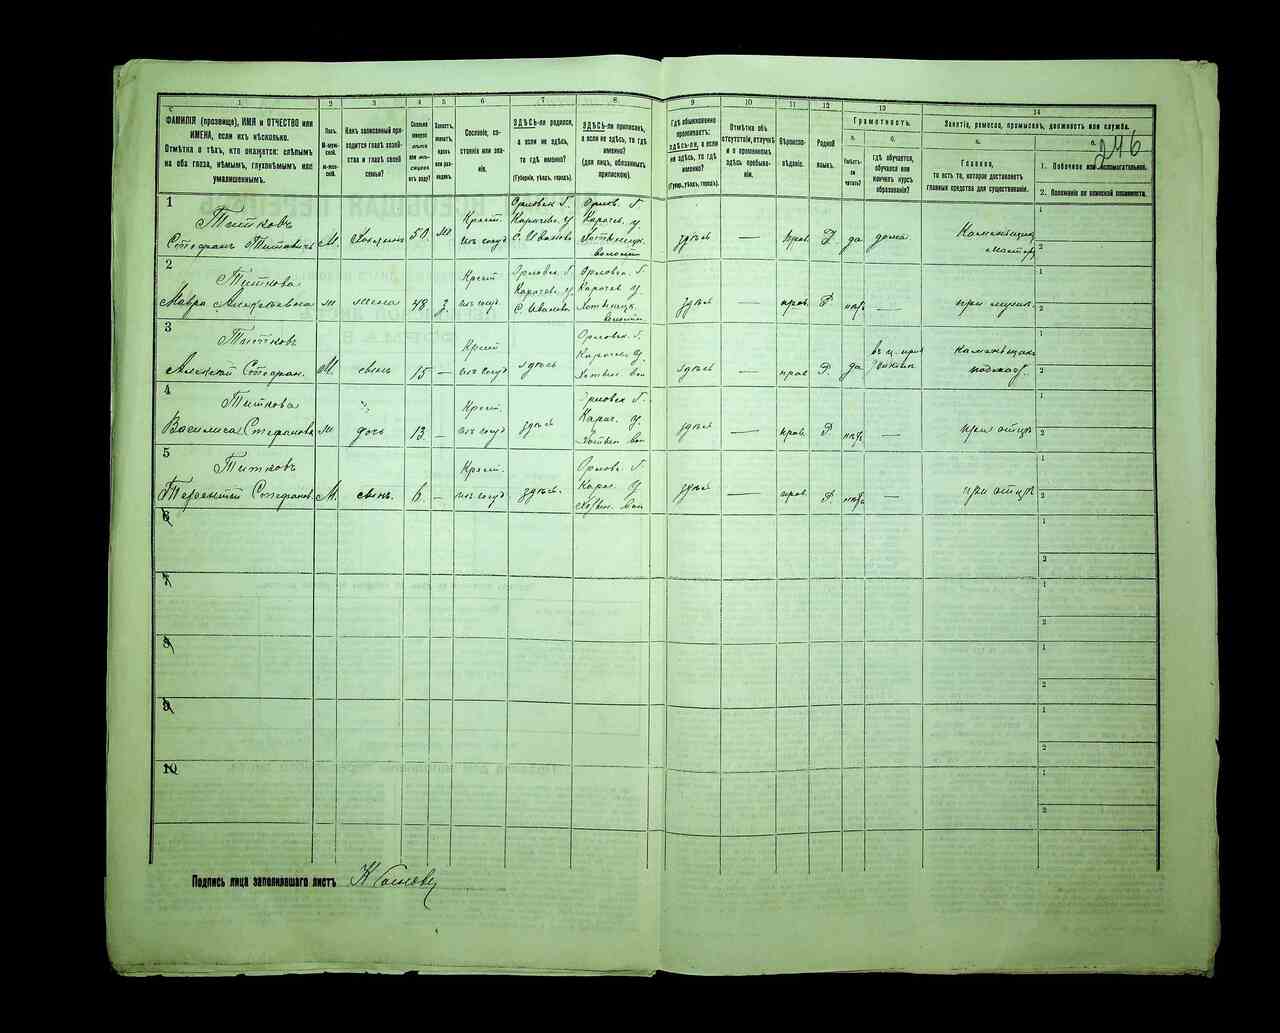 1 2 3 4 5 6 7 8 9 10 11 12 13 14
ФАМИЛІЯ (прозвище), ИМЯ и ОТЧЕСТВО или
ИМЕНА, если ихъ нѣсколько.
Отмѣтка о тѣхъ, кто окажется: слѣпымъ
на оба глаза, нѣмымъ, глухонѣмымъ или
умалишеннымъ.
Полъ.
М-муж-
ской.
Ж-жен-
скій.
Какъ записанный при-
ходится главѣ хозяй-
ства и главѣ своей
семьи?
Сколько
минуло
лѣтъ
отъ роду?
Холостъ,
женатъ,
вдовъ
или раз-
веденъ.
Сословіе, со-
стояніе или зва-
ніе.
ЗДѢСЬ-ли родился,
а если не здѣсь,
то гдѣ именно?
(Губернія, уѣздъ, городъ).
ЗДѢСЬ-ли приписанъ,
а если не здѣсь, то гдѣ
именно?
(для лицъ, обязанныхъ
припискою).
Гдѣ обыкновенно
проживаетъ:
ЗДѢСЬ-ЛИ, а если
не здѣсь, то гдѣ
именно?
(Губер., уѣздъ, городъ).
Отмѣтка объ
отсутствіи, отлучкѣ
и о временномъ
здѣсь пребыва-
ніи.
Вѣроиспо-
вѣданіе.
Родной
языкъ.
Грамотность.
а.
Умѣетъ-
ли
читать?
б.
гдѣ обучается,
обучался или
кончилъ курсъ
образованія?
Занятіе, ремесло, промыселъ, должность или служба.
а.
Главное,
то есть то, которое доставляетъ
главныя средства для существованія.
1. Побочное или вспомогательное.
2. Положеніе по воинской повинности.
246
1
Титковъ
Стефанъ Титовичъ М. Хозяинъ 50 ж Крест. изъ госуд
Орловск Г. Карачевс. У С. Иваново
Орлов. Г Карачев. У Хотынецк. волости
здѣсь — прав. Р. да дома Каменщикъ мастер
2
Титкова
Мавра Алексѣевна ж жена 48 з. Крест изъ госуд.
Орловск. Г. Карачев У. С. Иваново
Орловск. Г. Карачев У Хотынецк. волости
здѣсь — прав. Р нѣтъ — при мужѣ
3
Титковъ
Алексѣй Стефан. М. сынъ 15 — Крест изъ госуд здѣсь
Орловск. Г. Карачев У. Хотынец Вол
здѣсь — прав Р. да
4
Титкова
Василиса Стефановна ж дочь 13 — Крест. изъ госуд здѣсь
Орловск Г. Карач. У Хотынец Вол
здѣсь — прав. Р нѣтъ — при отцѣ
5
Титковъ
Терентій Стефанов. М. сынъ. 6 — Крест. изъ госуд здѣсь.
Орловс. Г. Карач. У Хотын. Вол
здѣсь — прав. Р. нѣтъ — при отцѣ
6
7
8
9
10
Подпись лица заполнявшаго листъ